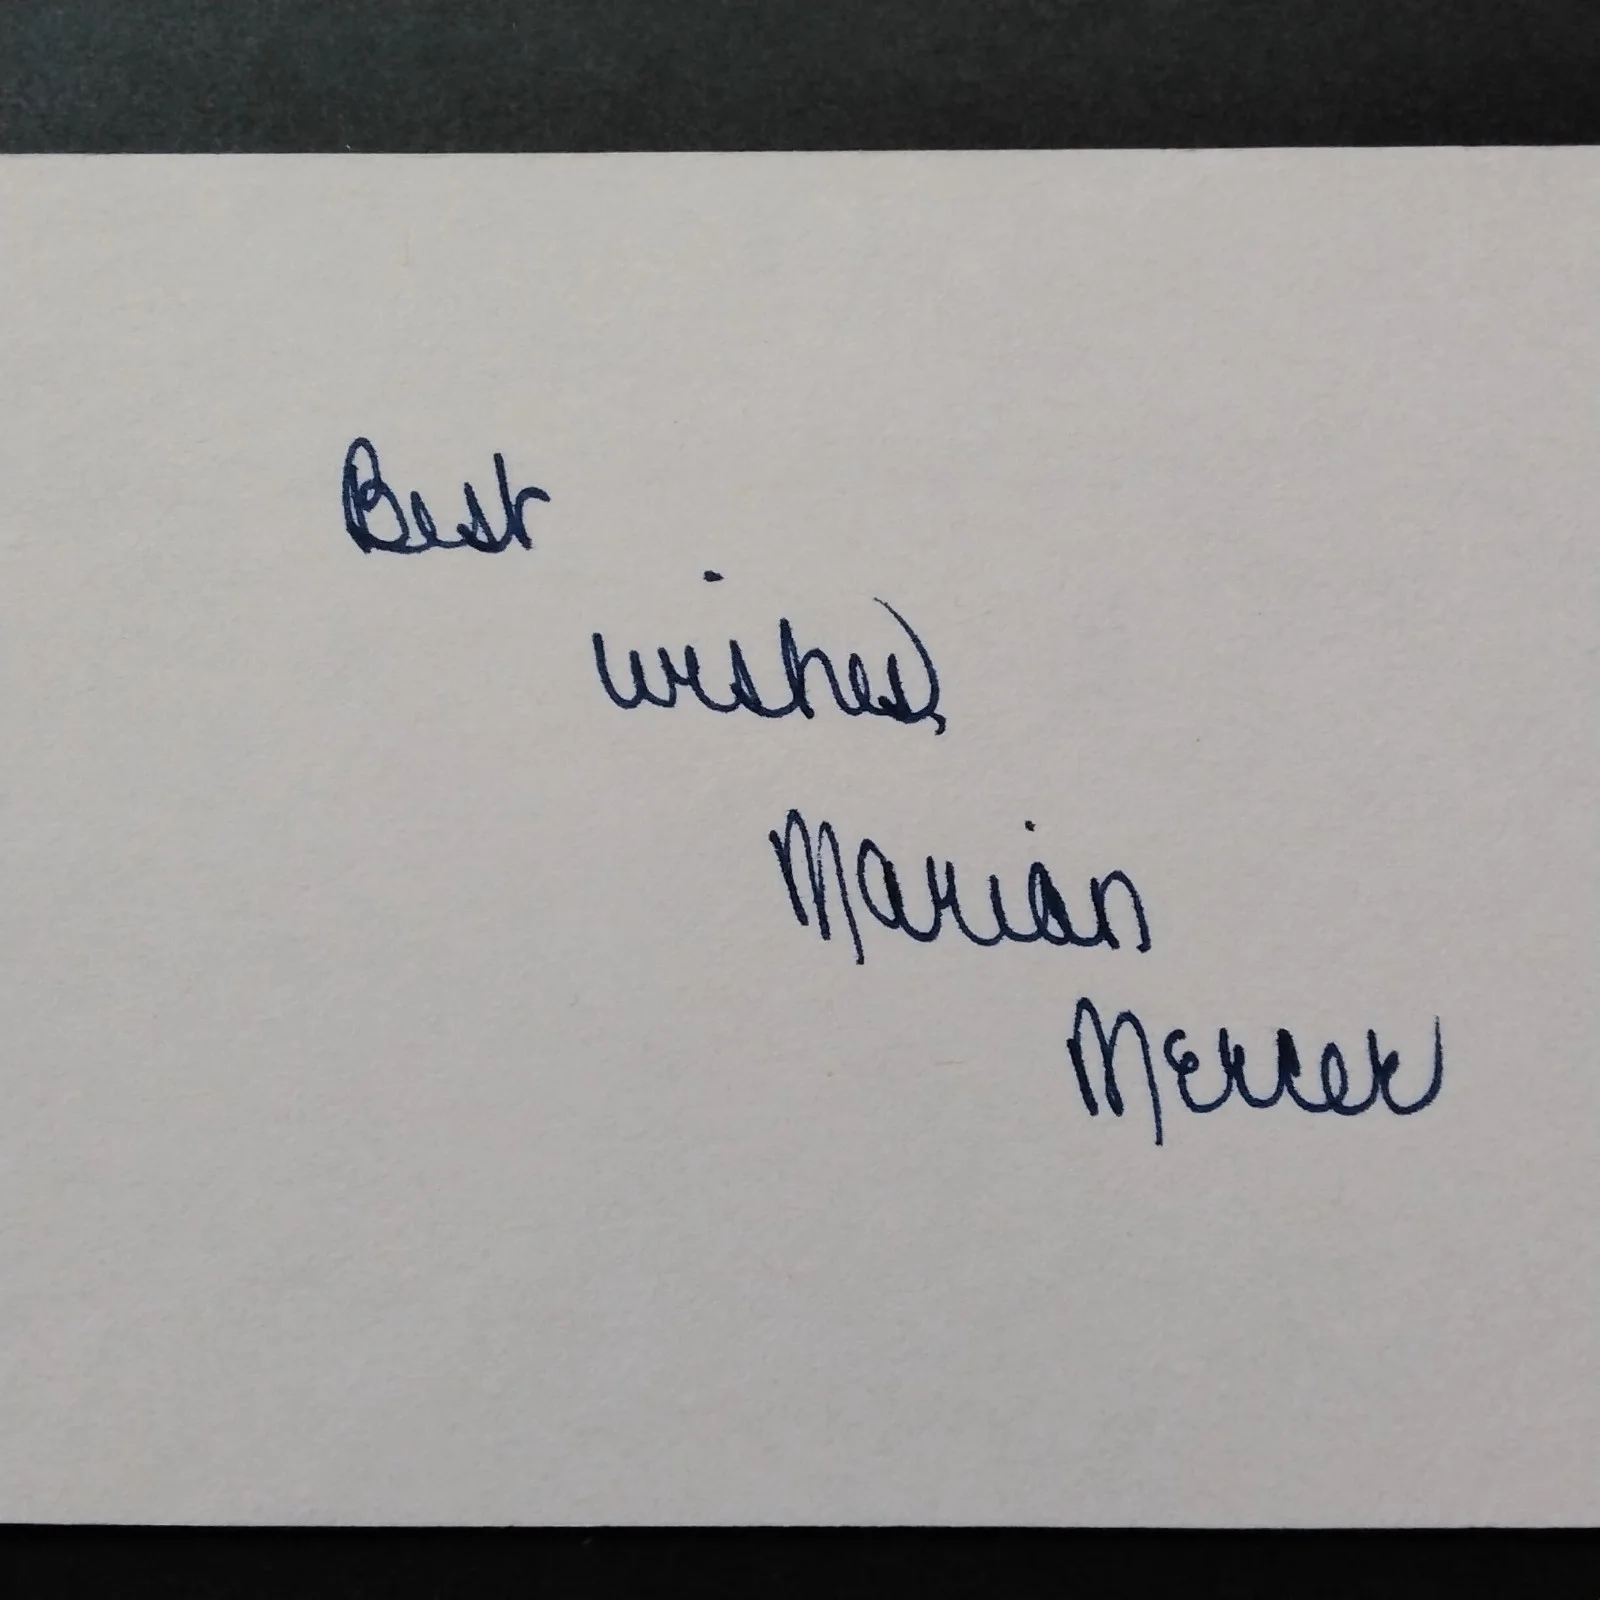 Best
wishes,
Marian
Mercer